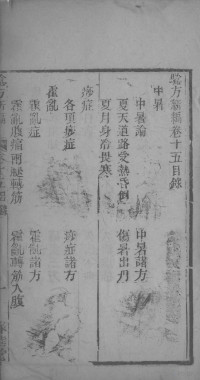 驗方新編卷十五目錄
中暑
中暑論
中暑諸方
夏天道路受熱昏倒
傷暑出丹
夏月身冷畏寒
痧症
各項痧症
痧症諸方
霍亂
霍亂症
霍亂諸方
霍亂腹痛兩腿轉筋
霍亂轉筋入腹